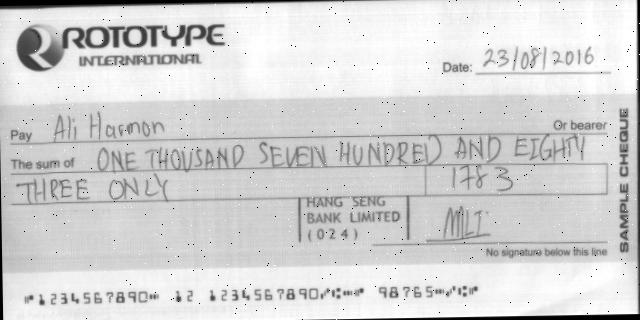 ROTOTYPE
INTERNATIONAL
Date: 23/08/2016
Pay Ali Harmon Or bearer
The sum of ONE THOUSAND SEVEN HUNDRED AND EIGHTY
THREE ONLY 1783
HANG SENG
BANK LIMITED
(024)
MLI
No signature below this line
SAMPLE CHEQUE
⑈1234567890⑈ 12 1234567890⑆⑈ 98765⑈⑆